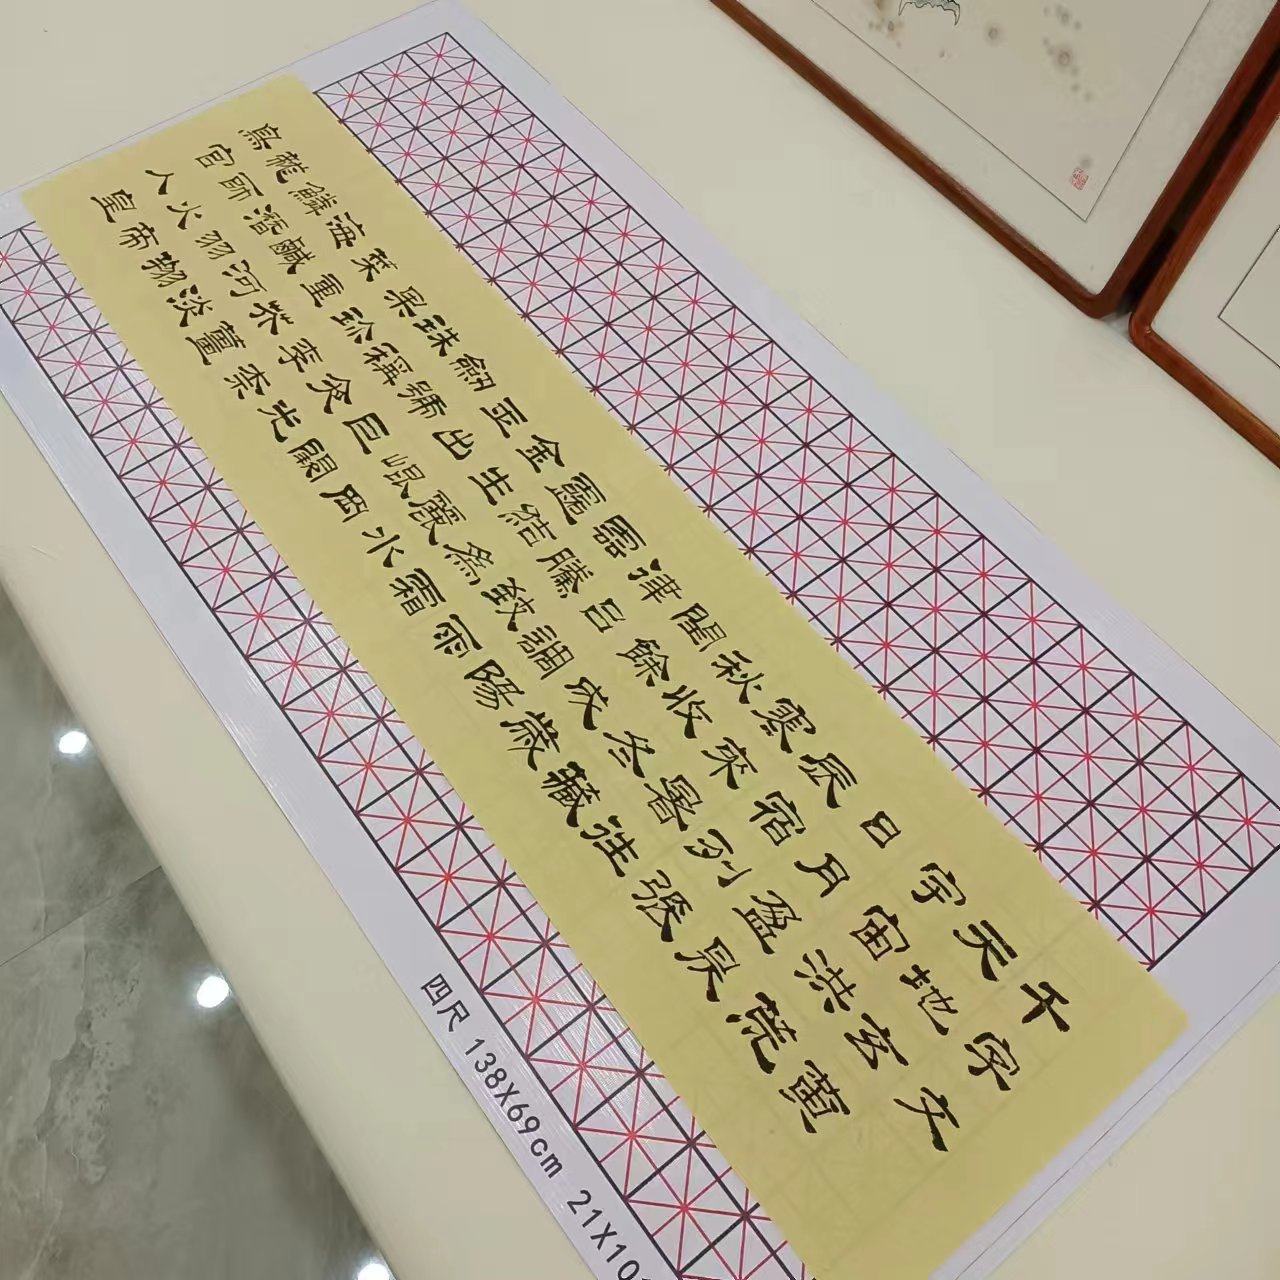 千字文
天地玄黄
宇宙洪荒
日月盈昃
辰宿列張
寒來暑往
秋收冬藏
閏餘成歲
律吕調陽
雲騰致雨
露結為霜
金生麗水
玉出崐岡
劍號巨闕
珠稱夜光
果珍李柰
菜重芥薑
海鹹河淡
鱗潛羽翔
龍師火帝
鳥官人皇
四尺 138X69cm 21X10